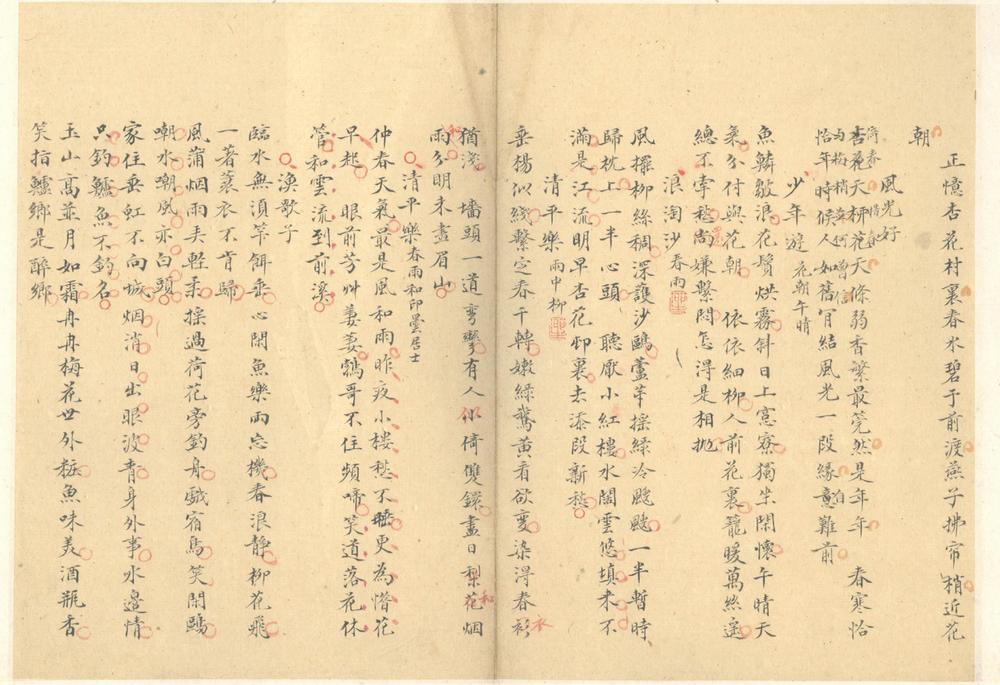 正憶杏花村裏春水碧于前渡燕子拂帘稍近花
朝
風光好
杏花天柳花天條弱香繁最筦然是年年　春寒恰
恰年時候人如舊冐結風光一段緣意難前
少年遊　花朝午晴
魚鱗皺浪花鬢烘霧斜日上窓寮獨坐閒懷午晴天
氣分付與花朝　依依細柳人前花裏籠暖萬絲遥
總不牽愁尚嫌繫悶怎得是相抛
浪淘沙　春雨
風櫂柳絲稠深護沙鷗蘆芽揉綠冷颼颼一半暫時
歸枕上一半心頭　聽厭小紅樓水闊雲悠填來不
滿是江流明早杏花邨裏去添段新愁
清平樂　雨中柳
垂楊似綫繫定春千轉嫩綠鵞黄看欲變染淂春衫
猶淺　墻頭一道彎彎有人小倚雙鐶盡日梨花烟
雨分明未畫眉山
清平樂　春雨和印曇居士
仲春天氣最是風和雨昨夜小樓愁不睡更為惜花
早起　眼前芳艸萋萋鸚哥不住頻啼笑道落花休
管和雲流到前溪
漁歌子
臨水無須竿餌垂心閒魚樂兩忘機春浪靜柳花飛
一著蓑衣不肯歸
風蒲烟雨弄輕柔採過荷花旁釣舟戲宿鳥笑閒鷗
嘲水嘲風亦白頭
家住垂虹不向城烟消日出眼波青身外事水邉情
只釣鱸魚不釣名
玉山髙並月如霜冉冉梅花世外粧魚味美酒瓶香
笑指鱸鄉是醉鄉